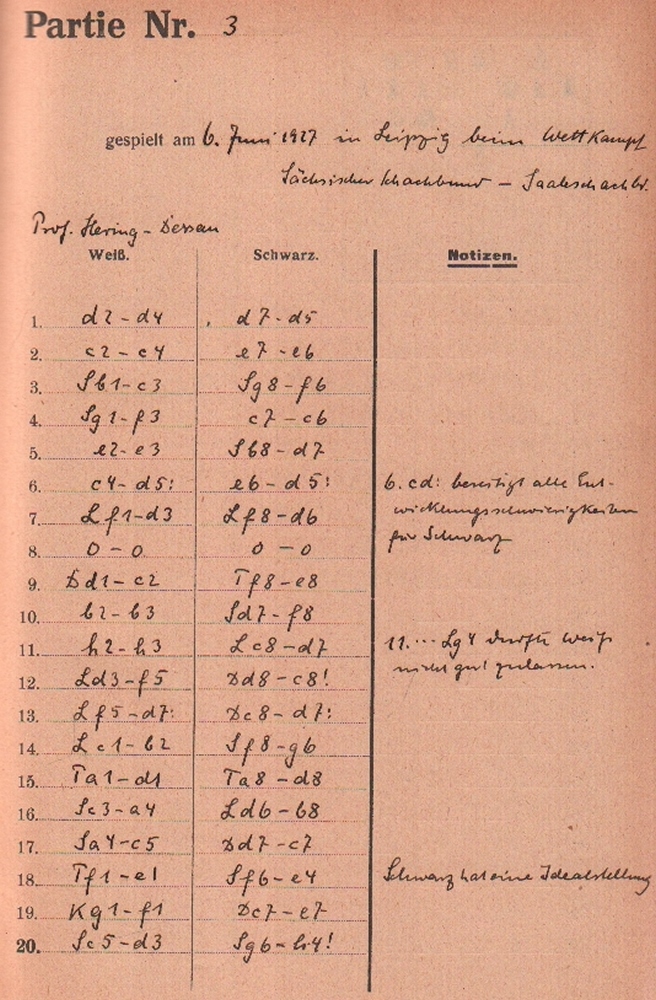 Partie Nr. 3
gespielt am 6. Juni 1927 in Leipzig beim Wettkampf
Sächsischer Schachbund – Saaleschachb.
Prof. Hering - Dessau
Weiß. Schwarz. Notizen.
1. d2 - d4 d7 - d5
2. c2 - c4 e7 - e6
3. Sb1 - c3 Sg8 - f6
4. Sg1 - f3 c7 - c6
5. e2 - e3 Sb8 - d7
6. c4 - d5: e6 - d5: 6. cd: beseitigt alle Ent-
7. Lf1 - d3 Lf8 - d6 wicklungsschwierigkeiten
8. 0 - 0 0 - 0 für Schwarz
9. Dd1 - c2 Tf8 - e8
10. b2 - b3 Sd7 - f8
11. h2 - h3 Lc8 - d7 11. ... Lg4 durfte Weiß
12. Ld3 - f5 Dd8 - c8! nicht gut zulassen.
13. Lf5 - d7: Dc8 - d7:
14. Lc1 - b2 Sf8 - g6
15. Ta1 - d1 Ta8 - d8
16. Sc3 - a4 Ld6 - b8
17. Sa4 - c5 Dd7 - c7
18. Tf1 - e1 Sf6 - e4 Schwarz hat eine Idealstellung
19. Kg1 - f1 Dc7 - e7
20. Sc5 - d3 Sg6 - h4!